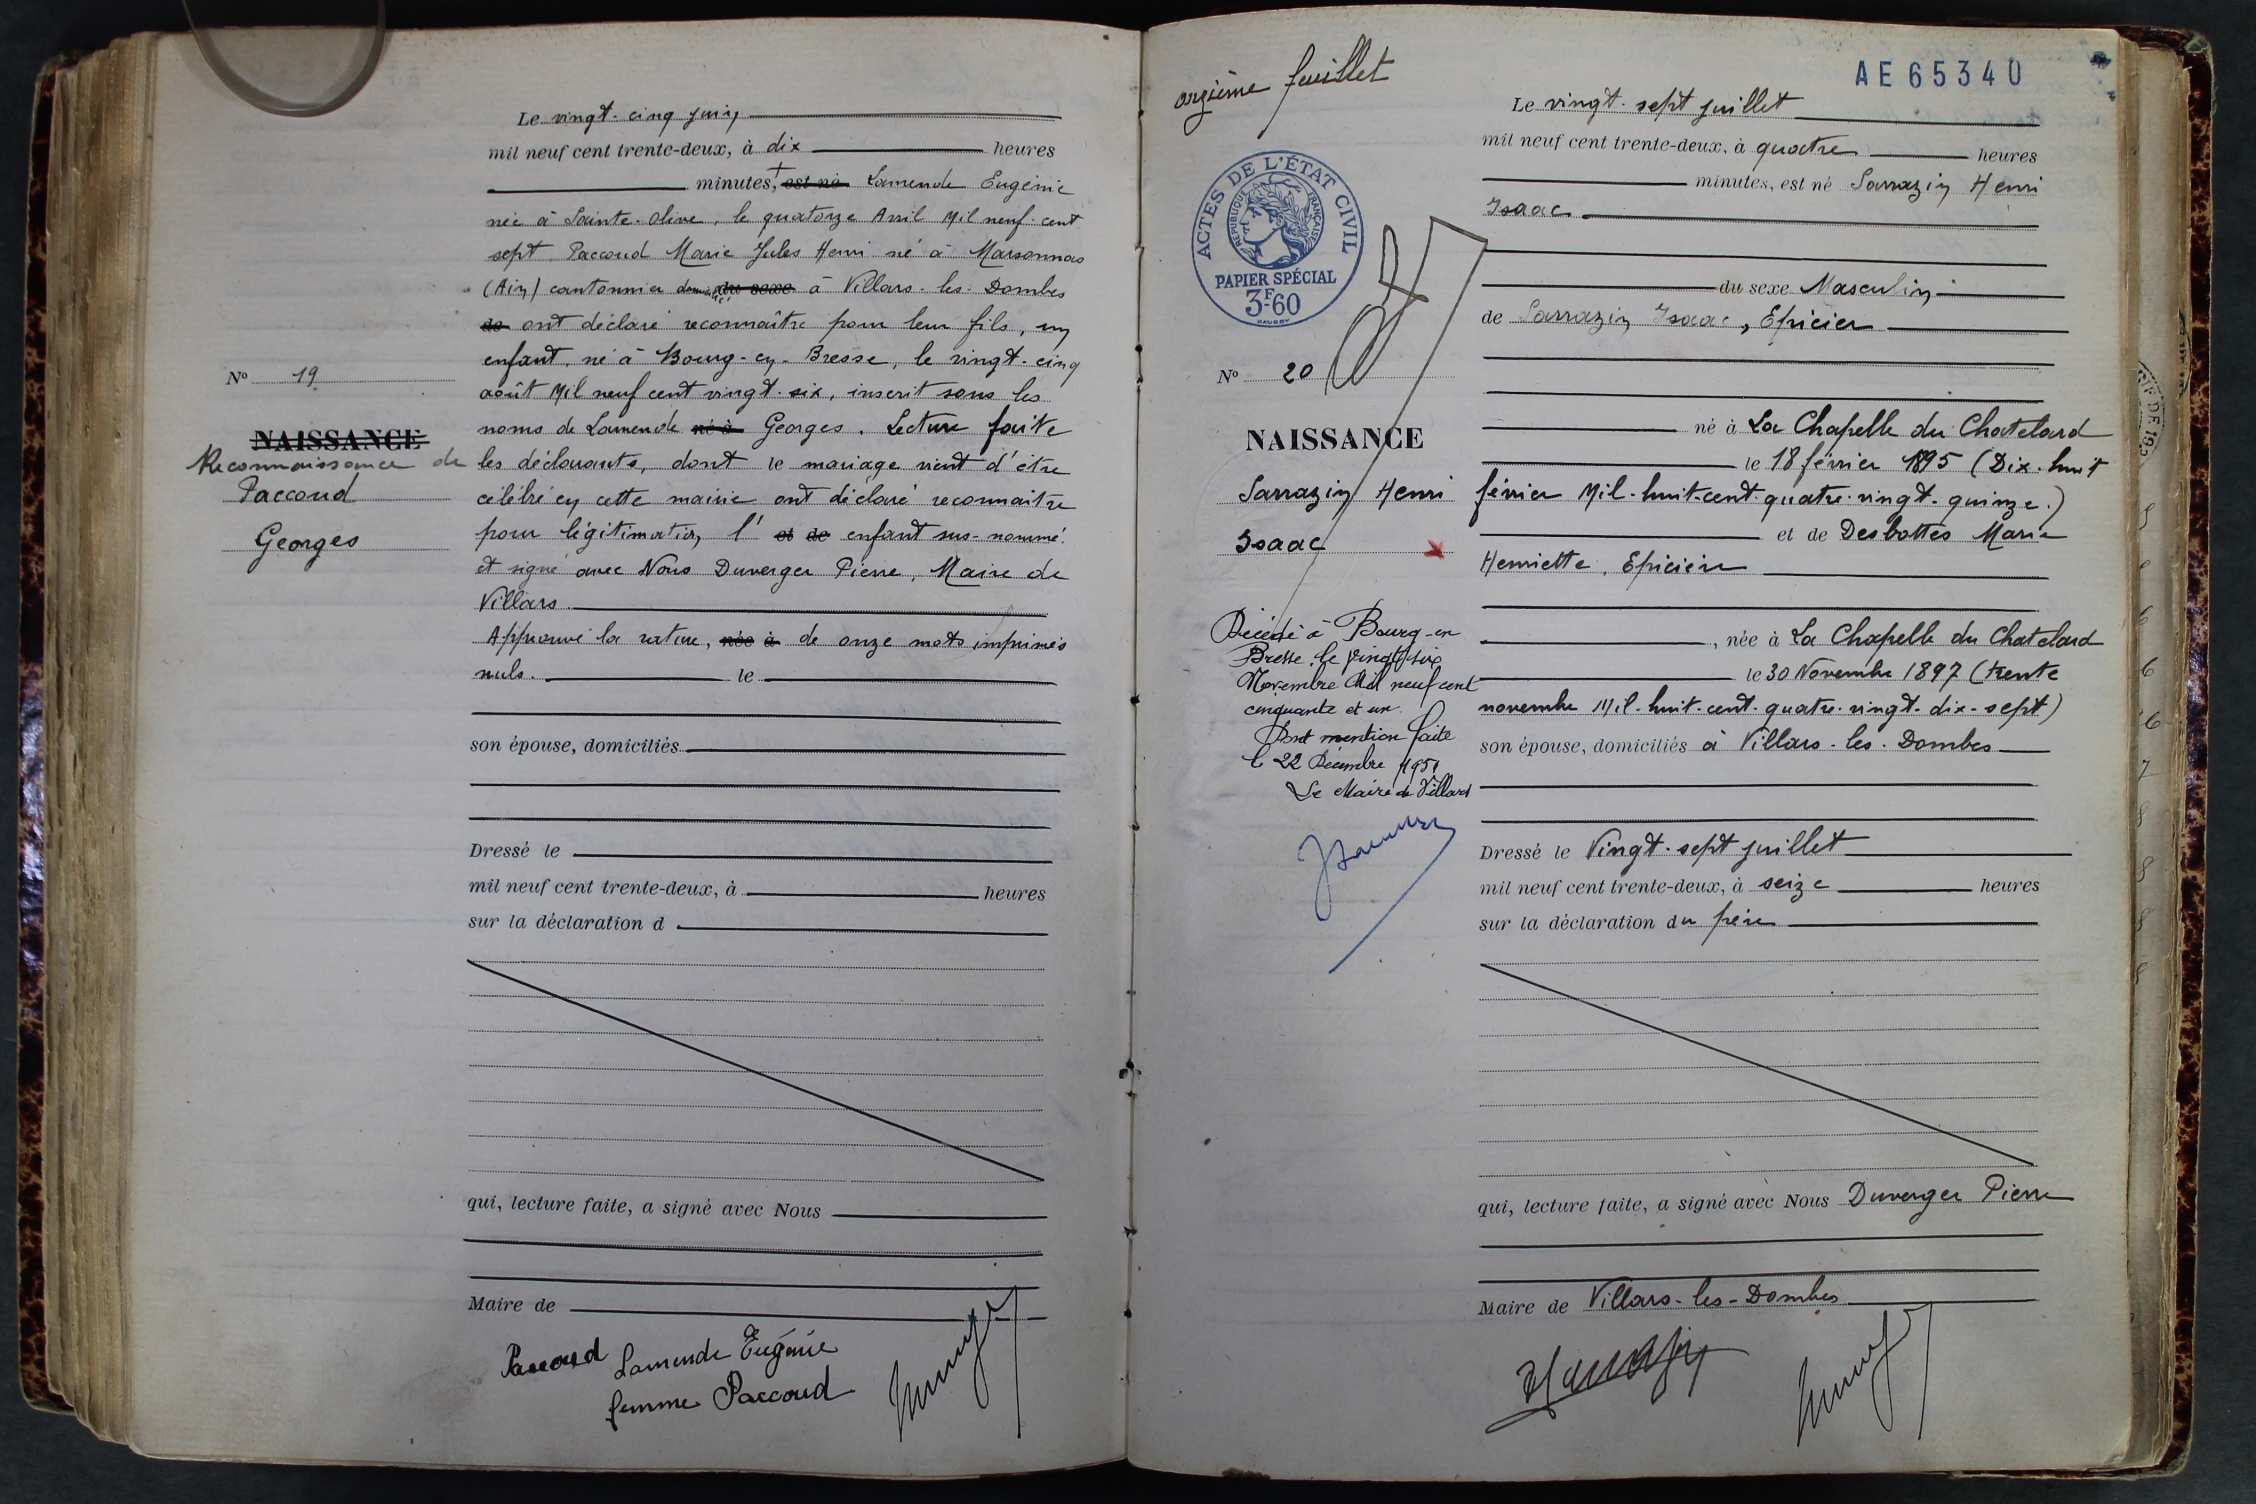 Le vingt-cinq juin
mil neuf cent trente-deux, à dix heures
minutes, est né Lamende Eugénie
née à Sainte-Olive, le quatorze Avril Mil neuf-cent
sept Paccoud Marie Jules Henri né à Marsonnas
(Ain) cantonnier domicilié du sexe à Villars-les-Dombes
de ont déclaré reconnaître pour leur fils, un
enfant né à Bourg-en-Bresse, le vingt-cinq
N° 19
août Mil neuf cent vingt-six, inscrit sous les
noms de Lamende né à Georges. Lecture faite
NAISSANCE
Reconnaissance de
Paccoud
Georges
les déclarants, dont le mariage vient d'être
célébré en cette mairie ont déclaré reconnaitre
pour légitimation, l' et de enfant sus-nommé.
et signé avec Nous Duverger Pierre, Maire de
Villars.
Approuvé la rature, née à de onze mots imprimés
nuls. le
son épouse, domiciliés
Dressé le
mil neuf cent trente-deux, à heures
sur la déclaration d
qui, lecture faite, a signé avec Nous
Maire de
Paccoud Lamende Eugénie
femme Paccoud
onzième feuillet
AE65340
ACTES DE L'ÉTAT CIVIL
RÉPUBLIQUE FRANÇAISE
PAPIER SPÉCIAL
3F-60
N° 20
NAISSANCE
Sarrazin Henri
Isaac
Décédé à Bourg-en
Bresse, le vingt six
Novembre Mil neuf cent
cinquante et un
Dont mention faite
le 22 Décembre 1951
Le Maire de Villars
Le vingt-sept juillet
mil neuf cent trente-deux, à quatre heures
minutes, est né Sarrazin Henri
Isaac
du sexe Masculin
de Sarrazin Isaac, Epicier
né à La Chapelle du Chatelard
le 18 février 1895 (Dix-huit
février Mil-huit-cent-quatre-vingt-quinze.)
et de Desbottes Marie
Henriette, Epicière
, née à La Chapelle du Chatelard
le 30 Novembre 1897 (trente
novembre Mil-huit-cent-quatre-vingt-dix-sept)
son épouse, domiciliés à Villars-les-Dombes
Dressé le Vingt-sept juillet
mil neuf cent trente-deux, à seize heures
sur la déclaration du père
qui, lecture faite, a signé avec Nous Duverger Pierre
Maire de Villars-les-Dombes